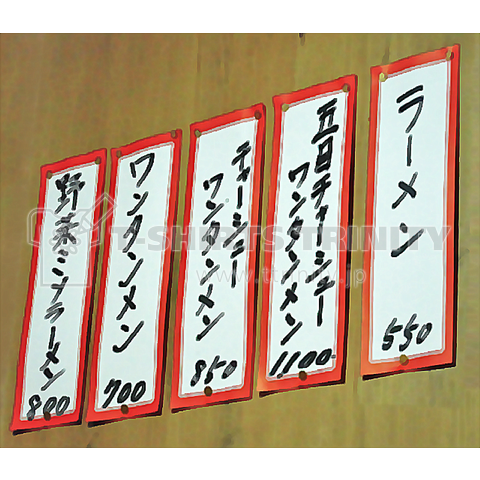 ラーメン
550
五目チャーシュー
ワンタンメン
1100
チャーシュー
ワンタンメン
850
ワンタンメン
700
野菜ミソラーメン
800
T-SHIRTS TRINITY
www.ttrinity.jp